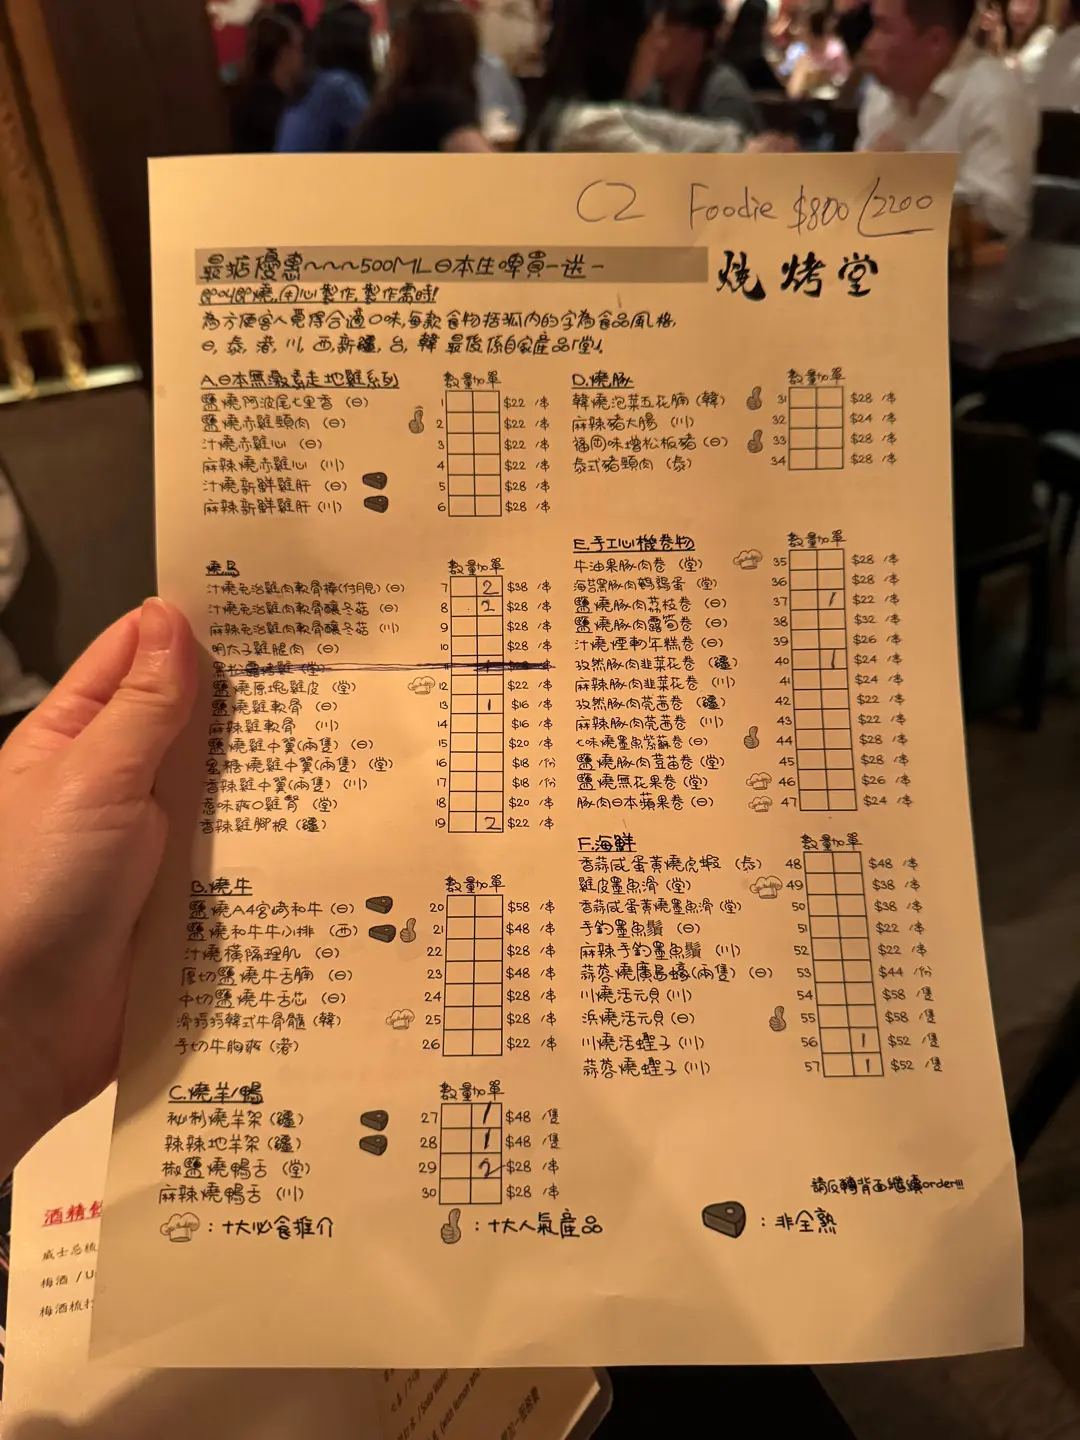 C2 Foodie $800/2200
最抵優惠~~~500ML日本生啤買一送一
燒烤堂
即叫即燒,用心製作,製作需時!
為方便客人覓得合適口味,每款食物括弧內的字為食品風格,
日,泰,港,川,西,新疆,台,韓 最後係自家產品「堂」
A.日本無激素走地雞系列 數量加單
鹽燒阿波尾七里香 (日) 1 $22 /串
鹽燒赤雞頸肉 (日) 2 $22 /串
汁燒赤雞心 (日) 3 $22 /串
麻辣燒赤雞心 (川) 4 $22 /串
汁燒新鮮雞肝 (日) 5 $28 /串
麻辣新鮮雞肝 (川) 6 $28 /串
燒鳥 數量加單
汁燒免治雞肉軟骨棒(付月見) (日) 7 2 $38 /串
汁燒免治雞肉軟骨釀冬菇 (日) 8 2 $28 /串
麻辣免治雞肉軟骨釀冬菇 (川) 9 $28 /串
明太子雞腿肉 (日) 10 $28 /串
黑松露燒雞 (堂) 11 1 $28 /串
鹽燒原塊雞皮 (堂) 12 $22 /串
鹽燒雞軟骨 (日) 13 1 $16 /串
麻辣雞軟骨 (川) 14 $16 /串
鹽燒雞中翼(兩隻) (日) 15 $20 /串
蜜糖燒雞中翼(兩隻) (堂) 16 $18 /份
香辣雞中翼(兩隻) (川) 17 $18 /份
惹味爽口雞腎 (堂) 18 $20 /串
香辣雞腳根 (疆) 19 2 $22 /串
B.燒牛 數量加單
鹽燒A4宮崎和牛 (日) 20 $58 /串
鹽燒和牛牛小排 (西) 21 $48 /串
汁燒橫隔理肌 (日) 22 $28 /串
厚切鹽燒牛舌腩 (日) 23 $48 /串
中切鹽燒牛舌芯 (日) 24 $28 /串
滑捋捋韓式牛骨髓 (韓) 25 $28 /串
手切牛胸爽 (港) 26 $22 /串
C.燒羊/鴨 數量加單
秘制燒羊架 (疆) 27 1 $48 /隻
辣辣地羊架 (疆) 28 1 $48 /隻
椒鹽燒鴨舌 (堂) 29 2 $28 /串
麻辣燒鴨舌 (川) 30 $28 /串
D.燒豚 數量加單
韓燒泡菜五花腩 (韓) 31 $28 /串
麻辣豬大腸 (川) 32 $24 /串
福岡味增松板豬 (日) 33 $28 /串
泰式豬頸肉 (泰) 34 $28 /串
E.手工心機卷物 數量加單
牛油果豚肉卷 (堂) 35 $28 /串
海苔黑豚肉鵪鶉蛋 (堂) 36 $28 /串
鹽燒豚肉荔枝卷 (日) 37 1 $22 /串
鹽燒豚肉露筍卷 (日) 38 $32 /串
汁燒煙鴨年糕卷 (日) 39 $26 /串
孜然豚肉韭菜花卷 (疆) 40 1 $24 /串
麻辣豚肉韭菜花卷 (川) 41 $24 /串
孜然豚肉芫茜卷 (疆) 42 $22 /串
麻辣豚肉芫茜卷 (川) 43 $22 /串
七味燒墨魚紫蘇卷 (日) 44 $28 /串
鹽燒豚肉荳苗卷 (堂) 45 $28 /串
鹽燒無花果卷 (堂) 46 $26 /串
豚肉日本蘋果卷 (日) 47 $24 /串
F.海鮮 數量加單
香蒜咸蛋黃燒虎蝦 (泰) 48 $48 /串
雞皮墨魚滑 (堂) 49 $38 /串
香蒜咸蛋黃燒墨魚滑 (堂) 50 $38 /串
手釣墨魚鬚 (日) 51 $22 /串
麻辣手釣墨魚鬚 (川) 52 $22 /串
蒜蓉燒廣島蠔(兩隻) (日) 53 $44 /份
川燒活元貝 (川) 54 $58 /隻
浜燒活元貝 (日) 55 $58 /隻
川燒活蟶子 (川) 56 1 $52 /隻
蒜蓉燒蟶子 (川) 57 1 $52 /隻
請反轉背面繼續order!!!
:十大必食推介 :十大人氣產品 :非全熟
酒精
威士忌梳
梅酒 / U
梅酒梳打